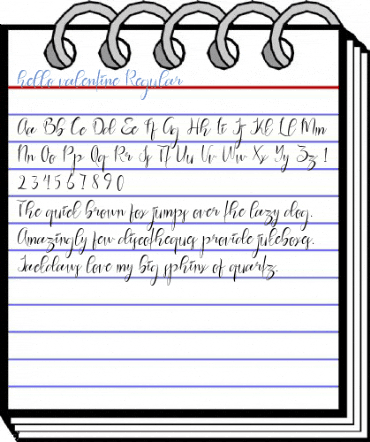 hello valentine Regular
Aa Bb Cc Dd Ee Ff Gg Hh Ii Jj Kk Ll Mm
Nn Oo Pp Qq Rr Ss Tt Uu Vv Ww Xx Yy Zz 1
2 3 4 5 6 7 8 9 0
The quick brown fox jumps over the lazy dog.
Amazingly few discotheques provide jukeboxes.
Jackdaws love my big sphinx of quartz.